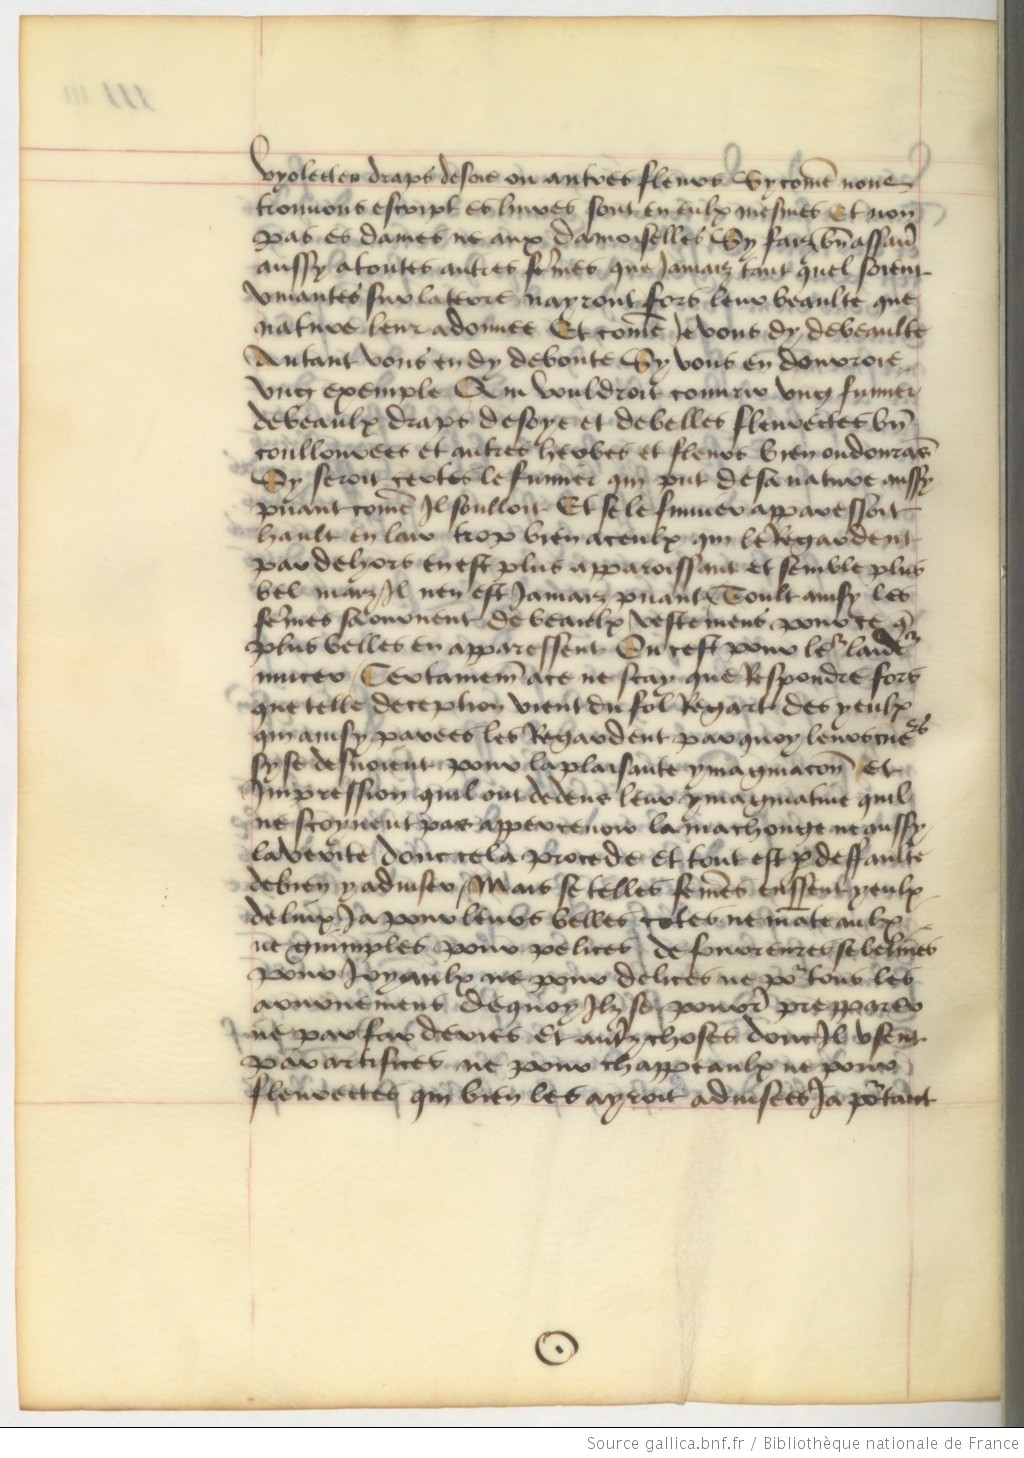 vyolettes draps de soie ou autres fleurs Sy com̃e nous
trouuons escript es liures sont en eulx mesmes Et non
pas es dames ne aux damoiselles Sy faiz bñ assauoir
aussy a toutes autres fem̃es que Jamaiz tant quel soient
viuantes sur la terre nayront fors leur beaulte que
nature leur a donnee Et com̃e Je vous dy de beaulte
Autant vous en dy de bonte Sy vous en donroie
vng exemple Qui vouldroit couurir vng fumier
de beaulx draps de soye et de belles fleurettes bñ
coullourees et autres herbes et fleurs bien oudourãs
Sy seroit certes le fumier qui put de sa nature aussy
puant com̃e Il soulloit Et se le fumier apparessoit
hault en lair trop bien a ceulx qui le Regardent
par dehors en est plus apparoissant et semble plus
bel maiz Il nen est Jamaiz puant Toult ainsy les
fem̃es saournent de beaulx vestemens pour ce q̃
plus belles en apparessent Ou cest pour le^r laid^r
mucer Certainem̃ a ce ne scay que Respondre fors
que telle deception vient du fol Regart des yeulx
qui ainsy parees les Regardent par quoy leurs cue^rs
sy se desuoient pour la plaisante ymaginacoñ Et
Impression quil ont dedens leur ymaginatiue quil
ne scoyuent pas apperceuoir la machonge ne aussy
la verite Donc cela procede Et tout est p̲ deffaulte
de bien y aduiser Mais se telles fem̃es eussent yeulx
de luix Ja pour leurs belles cotes ne mãteaulx
ne guimples pour pelices de fourreures sebelines
pour Joyaulx ne pour delices ne po^r tous les
aournemens de quoy Ilz se pouoĩr prepparer
ne par farderies Et aussy choses dont Il vsent
par artifices ne pour chappeaulx ne pour
fleurettes qui bien les ayroit aduisees Ja po^rtant
Source gallica.bnf.fr / Bibliothèque nationale de France